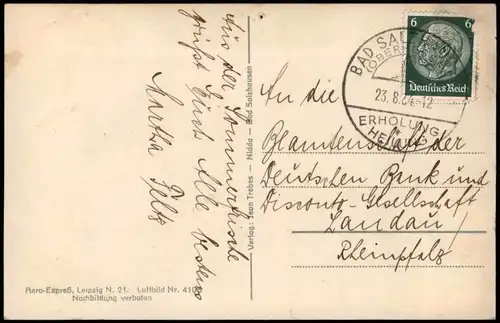 Aus der Sommerfrische
grüßt Euch Alle bestens
Martha Peltz
Verlag: Jean Trebes — Nidda — Bad Salzhausen
Aero-Expreß, Leipzig N. 21. Luftbild Nr. 410
Nachbildung verboten
6 6
Deutsches Reich
BAD SAL
(OBER
23.8.34-12
ERHOLUNG
HEI
An die
Beamtenschaft der
Deutschen Bank und
Disconto-Gesellschaft
Landau
Rheinpfalz